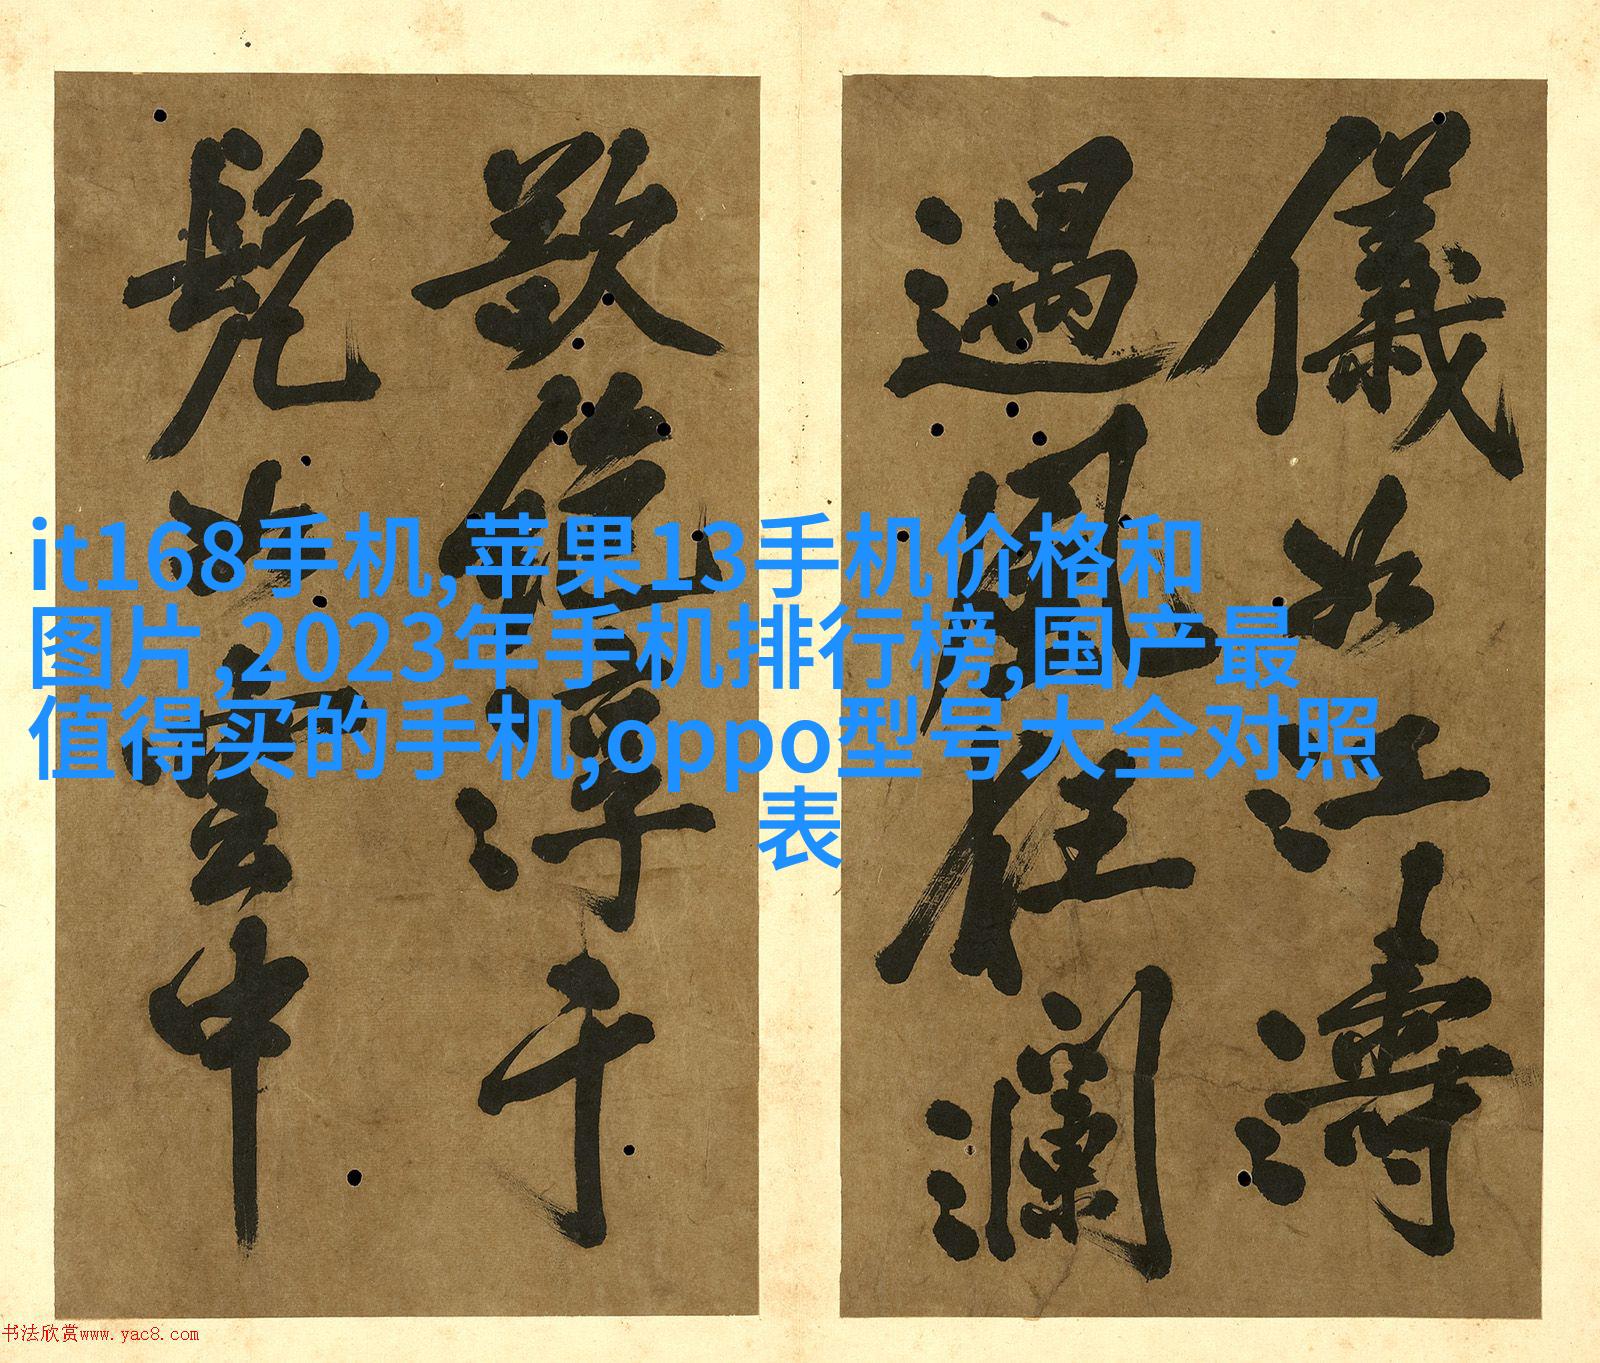 it168手机,苹果13手机价格和
图片,2023年手机排行榜,国产最
值得买的手机,oppo型号大全对照
表
儀如江濤
遇風瀾
浮于
雲中
书法欣赏www.yac8.com